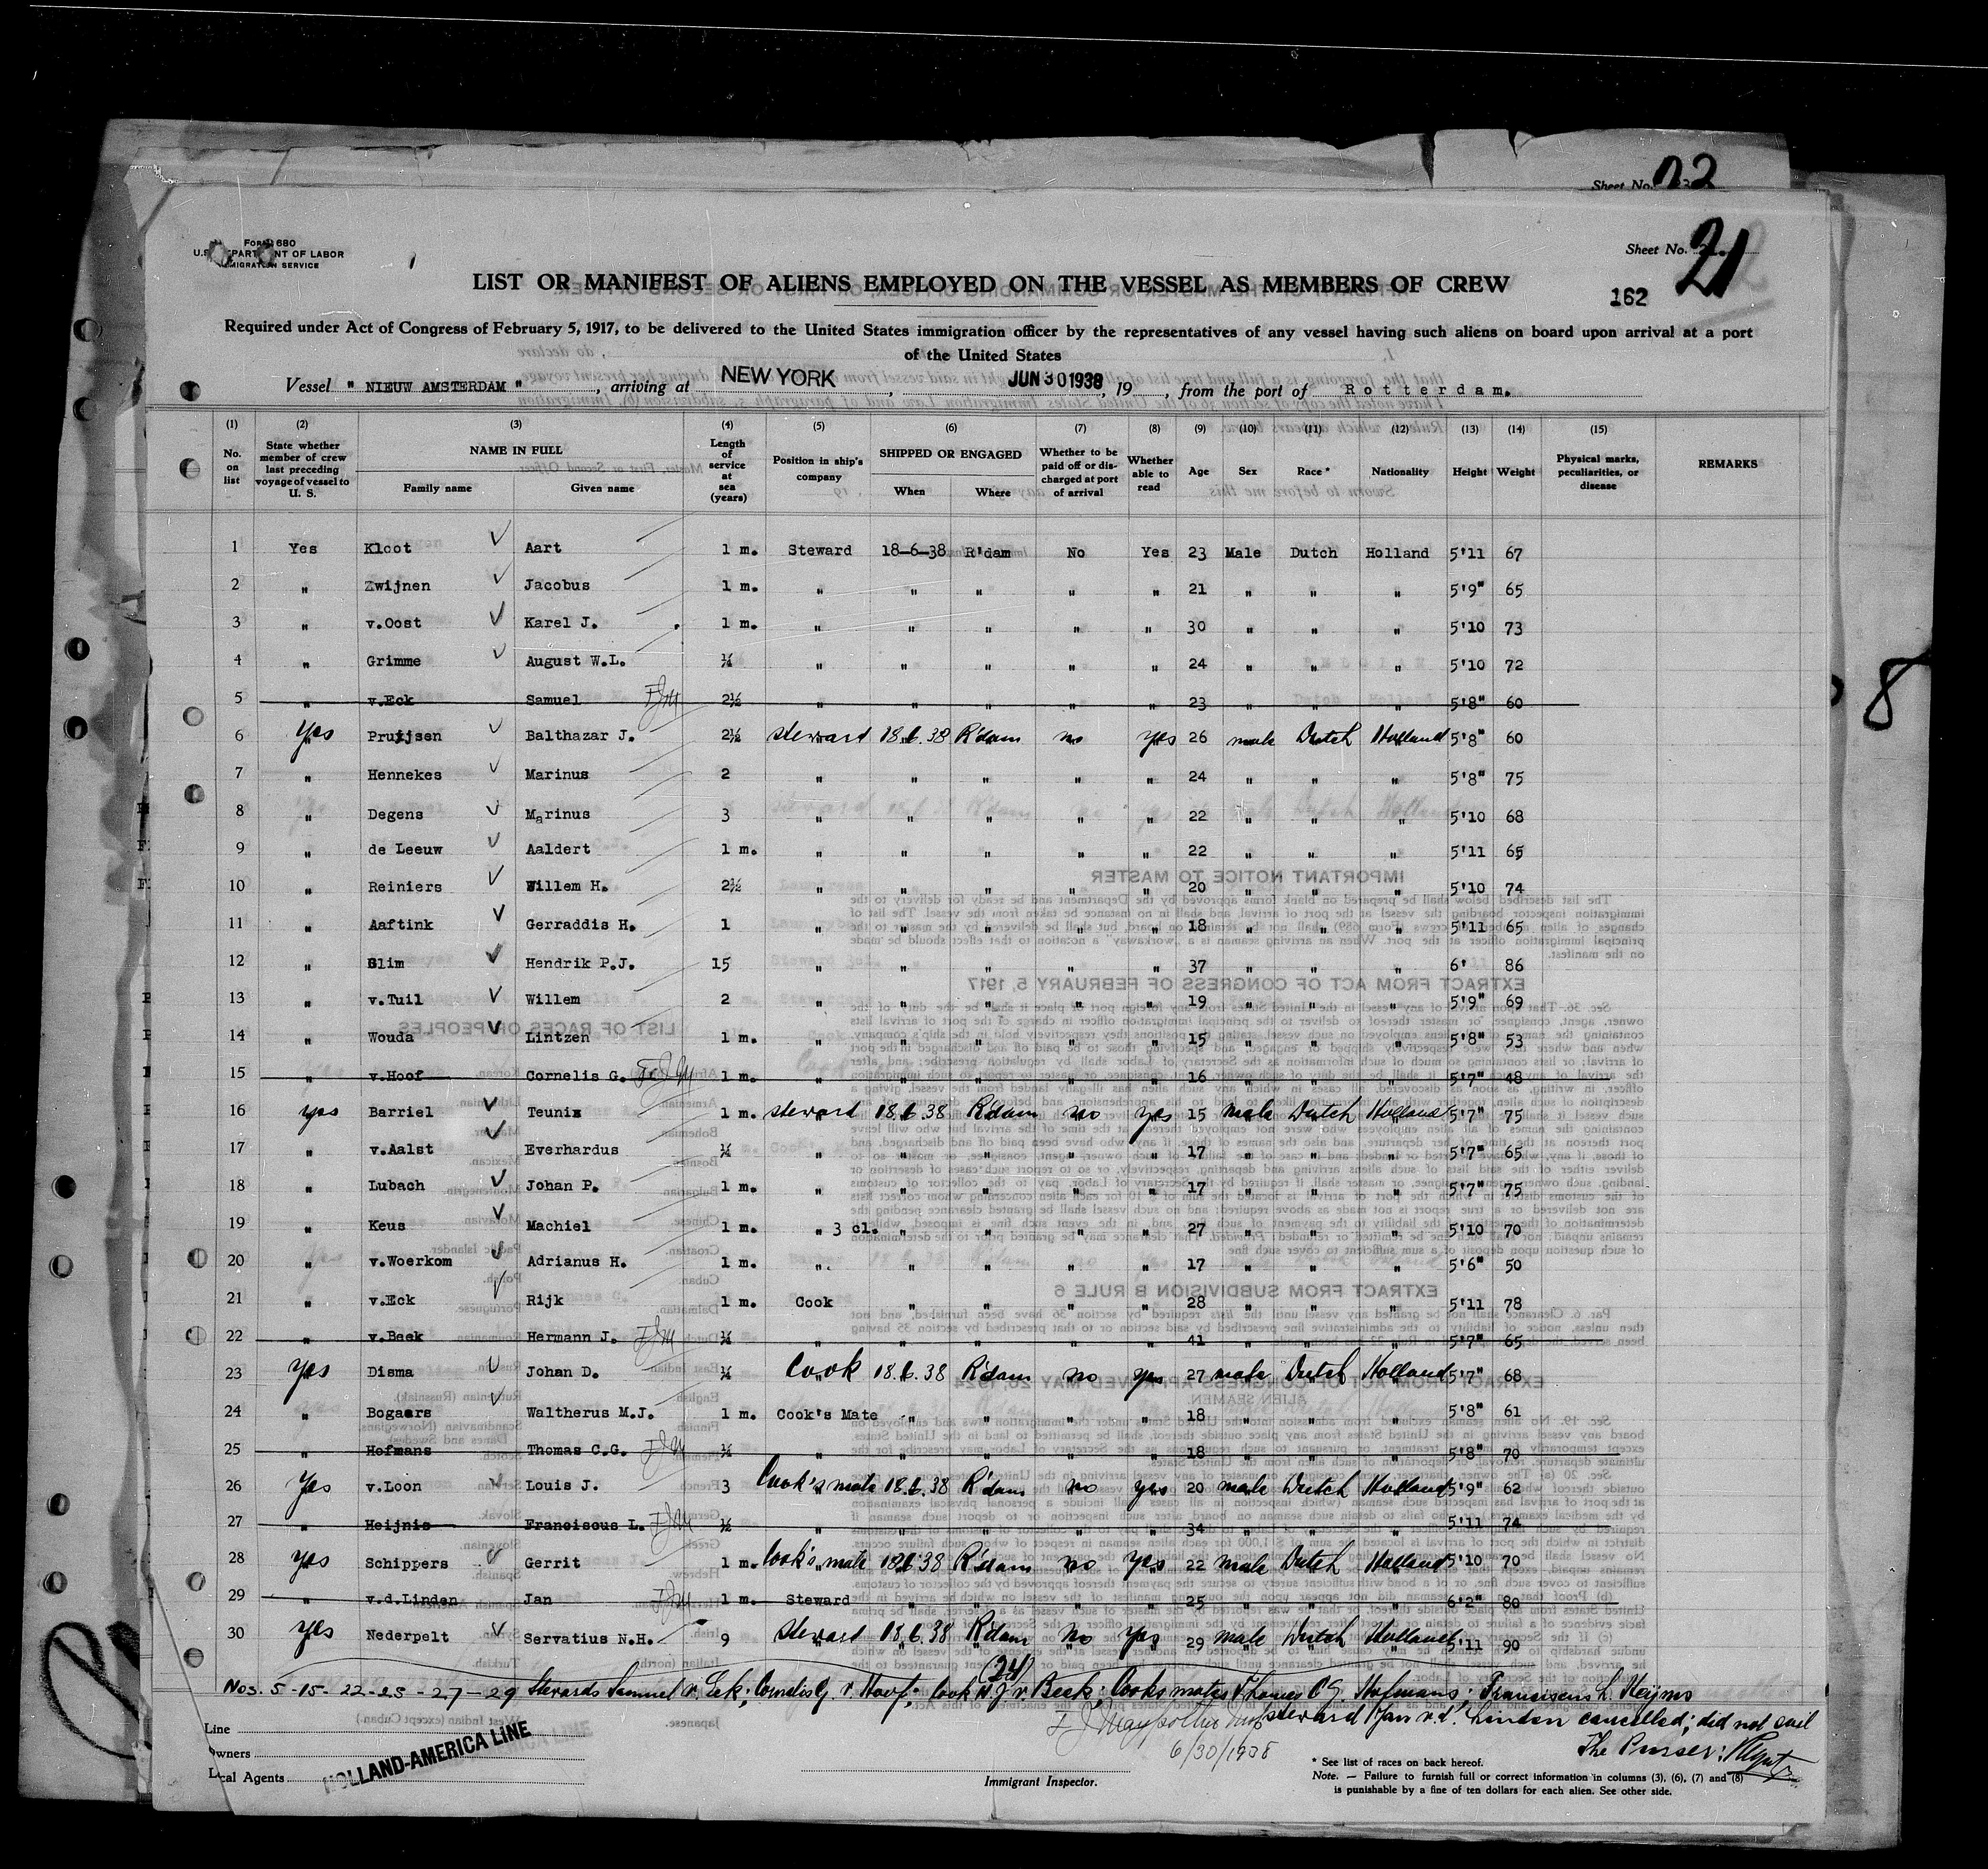 Sheet No. 22
Form 680
U.S. DEPARTMENT OF LABOR
IMMIGRATION SERVICE
Sheet No. 21
LIST OR MANIFEST OF ALIENS EMPLOYED ON THE VESSEL AS MEMBERS OF CREW
162
Required under Act of Congress of February 5, 1917, to be delivered to the United States immigration officer by the representatives of any vessel having such aliens on board upon arrival at a port
of the United States
Vessel " NIEUW AMSTERDAM " , arriving at NEW YORK , JUN 30 1938 , 19 , from the port of Rotterdam.
(1) (2) (3) (4) (5) (6) (7) (8) (9) (10) (11) (12) (13) (14) (15)
No. on list State whether member of crew last preceding voyage of vessel to U. S. NAME IN FULL Family name Given name Length of service at sea (years) Position in ship's company SHIPPED OR ENGAGED When Where Whether to be paid off or discharged at port of arrival Whether able to read Age Sex Race * Nationality Height Weight Physical marks, peculiarities, or disease REMARKS
1 Yes Kloot Aart 1 m. Steward 18-6-38 R'dam No Yes 23 Male Dutch Holland 5'11 67
2 " Zwijnen Jacobus 1 m. " " " " " 21 " " " 5'9" 65
3 " v.Oost Karel J. 1 m. " " " " " 30 " " " 5'10 73
4 " Grimme August W.L. ¼ " " " " " 24 " " " 5'10 72
5 " v.Eck Samuel FJM 2½ " " " " " 23 " " " 5'8" 60
6 Yes Pruijsen Balthazar J. 2½ steward 18.6.38 R'dam no yes 26 male Dutch Holland 5'8" 60
7 " Hennekes Marinus 2 " " " " " 24 " " " 5'8" 75
8 " Degens Marinus 3 " " " " " 22 " " " 5'10 68
9 " de Leeuw Aaldert 1 m. " " " " " 22 " " " 5'11 65
10 " Reiniers Willem H. 2½ " " " " " 20 " " " 5'10 74
11 " Aaftink Gerraddis H. 1 " " " " " 18 " " " 5'11 65
12 " Slim Hendrik P.J. 15 " " " " " 37 " " " 6' 86
13 " v.Tuil Willem 2 " " " " " 19 " " " 5'9" 69
14 " Wouda Lintzen 1 m. " " " " " 15 " " " 5'8" 53
15 " v.Hoof Cornelis G. FJM 1 m. " " " " " 16 " " " 5'7" 48
16 yes Barriel Teunis 1 m. steward 18.6.38 R'dam no yes 15 male Dutch Holland 5'7" 75
17 " v.Aalst Everhardus ¼ " " " " " 17 " " " 5'7" 65
18 " Lubach Johan P. 1 m. " " " " " 17 " " " 5'7" 75
19 " Keus Machiel 1 m. " 3 cl. " " " " 27 " " " 5'10 70
20 " v.Woerkom Adrianus H. 1 m. " " " " " 17 " " " 5'6" 50
21 " v.Eck Rijk 1 m. Cook " " " " 28 " " " 5'11 78
22 " v.Beek Hermann J. FJM ¼ " " " " " 41 " " " 5'7" 65
23 Yes Disma Johan D. ¼ Cook 18.6.38 R'dam no yes 27 male Dutch Holland 5'7" 68
24 " Bogaers Waltherus M.J. 1 m. Cook's Mate " " " " 18 " " " 5'8" 61
25 " Hofmans Thomas C.G. FJM ½ " " " " " 18 " " " 5'8" 70
26 Yes v.Loon Louis J. 3 Cook's mate 18.6.38 R'dam no yes 20 male Dutch Holland 5'9" 62
27 " Heijnis Franciscus L. FJM ½ " " " " " 34 " " " 5'11 74
28 yes Schippers Gerrit 1 m. Cook's mate 18.6.38 R'dam no yes 22 male Dutch Holland 5'10 70
29 " v.d.Linden Jan FJM 1 m. Steward " " " " 25 " " " 6'2" 80
30 yes Nederpelt Servatius N.H. 9 steward 18.6.38 R'dam no yes 29 male Dutch Holland 5'11 90
(24)
Nos. 5-15-22-25-27-29 Stewards Samuel v. Eck; Cornelis G. v. Hoof; Cook H. J. v. Beek; Cooks mates Thomas C G. Hofmans; Franciscus L. Heijnis
steward Jan v.d. Linden cancelled; did not sail
6/30/1938
The Purser:
Line
Owners
Local Agents
HOLLAND-AMERICA LINE
Immigrant Inspector.
* See list of races on back hereof.
Note. — Failure to furnish full or correct information in columns (3), (6), (7) and (8)
is punishable by a fine of ten dollars for each alien. See other side.
8